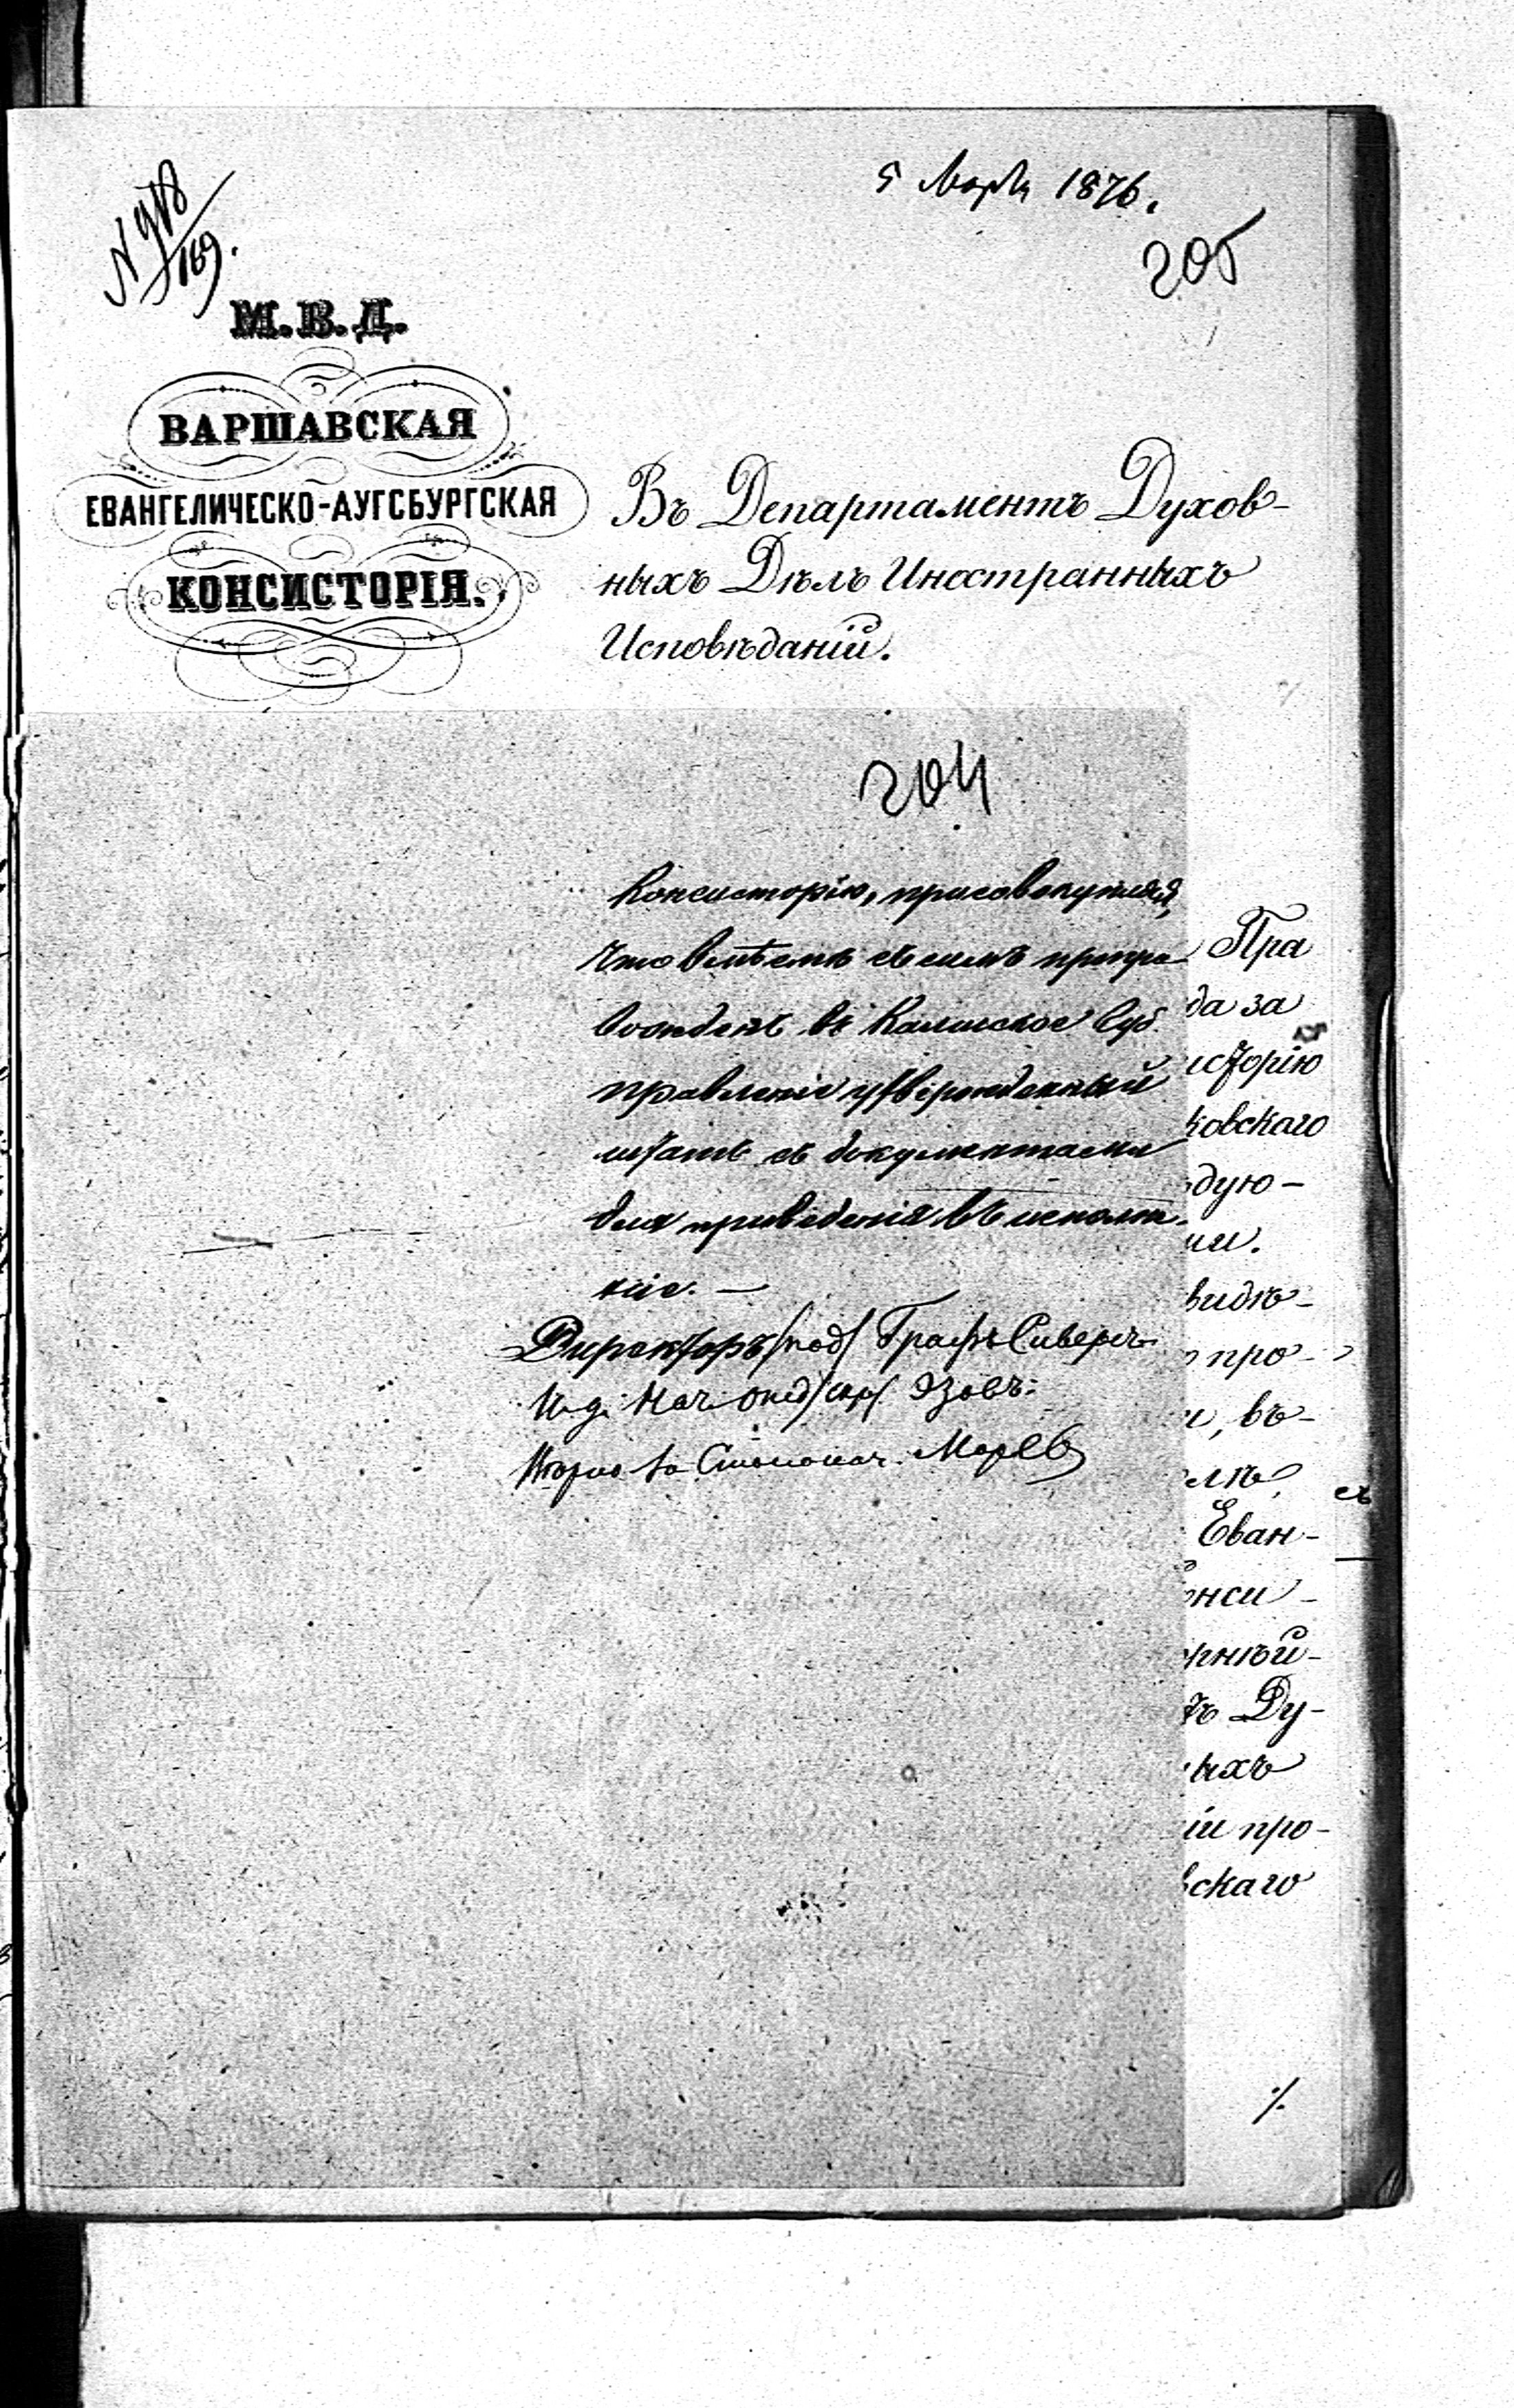 5 Марта 1876.
205
М.В.Д.
ВАРШАВСКАЯ
ЕВАНГЕЛИЧЕСКО-АУГСБУРГСКАЯ
КОНСИСТОРІЯ.
Въ Департаментъ Духов-
ныхъ Дѣлъ Иностранныхъ
Исповѣданій.
204
Консисторію, присовокупляя,
что вмѣстѣ съ симъ препро
вожденъ въ Калишское Губ.
правленіе утвержденный
штатъ съ документами
для приведенія въ исполне-
ніе. —
Директоръ /под/ Графъ Сиверсъ
И. д. Нач. Отд /скр/ Эзовъ.
Вѣрно за Столонач.
Пра
да за
исторію
ковскаго
дую-
ии.
видѣ-
про-
и, въ-
лѣ,
съ
Еван-
онси-
рнѣй-
тъ Ду-
ыхъ
іи про-
вскаго